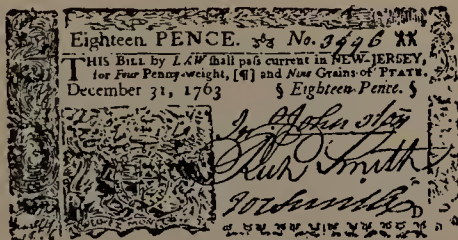 Eighteen PENCE. No. 3996
THIS BILL by LAW ſhall paſs current in NEW-JERSEY,
for Four Penny-weight, [¶] and Nine Grains of PLATE.
December 31, 1763 § Eighteen-Pence. §
Johnston
Smith